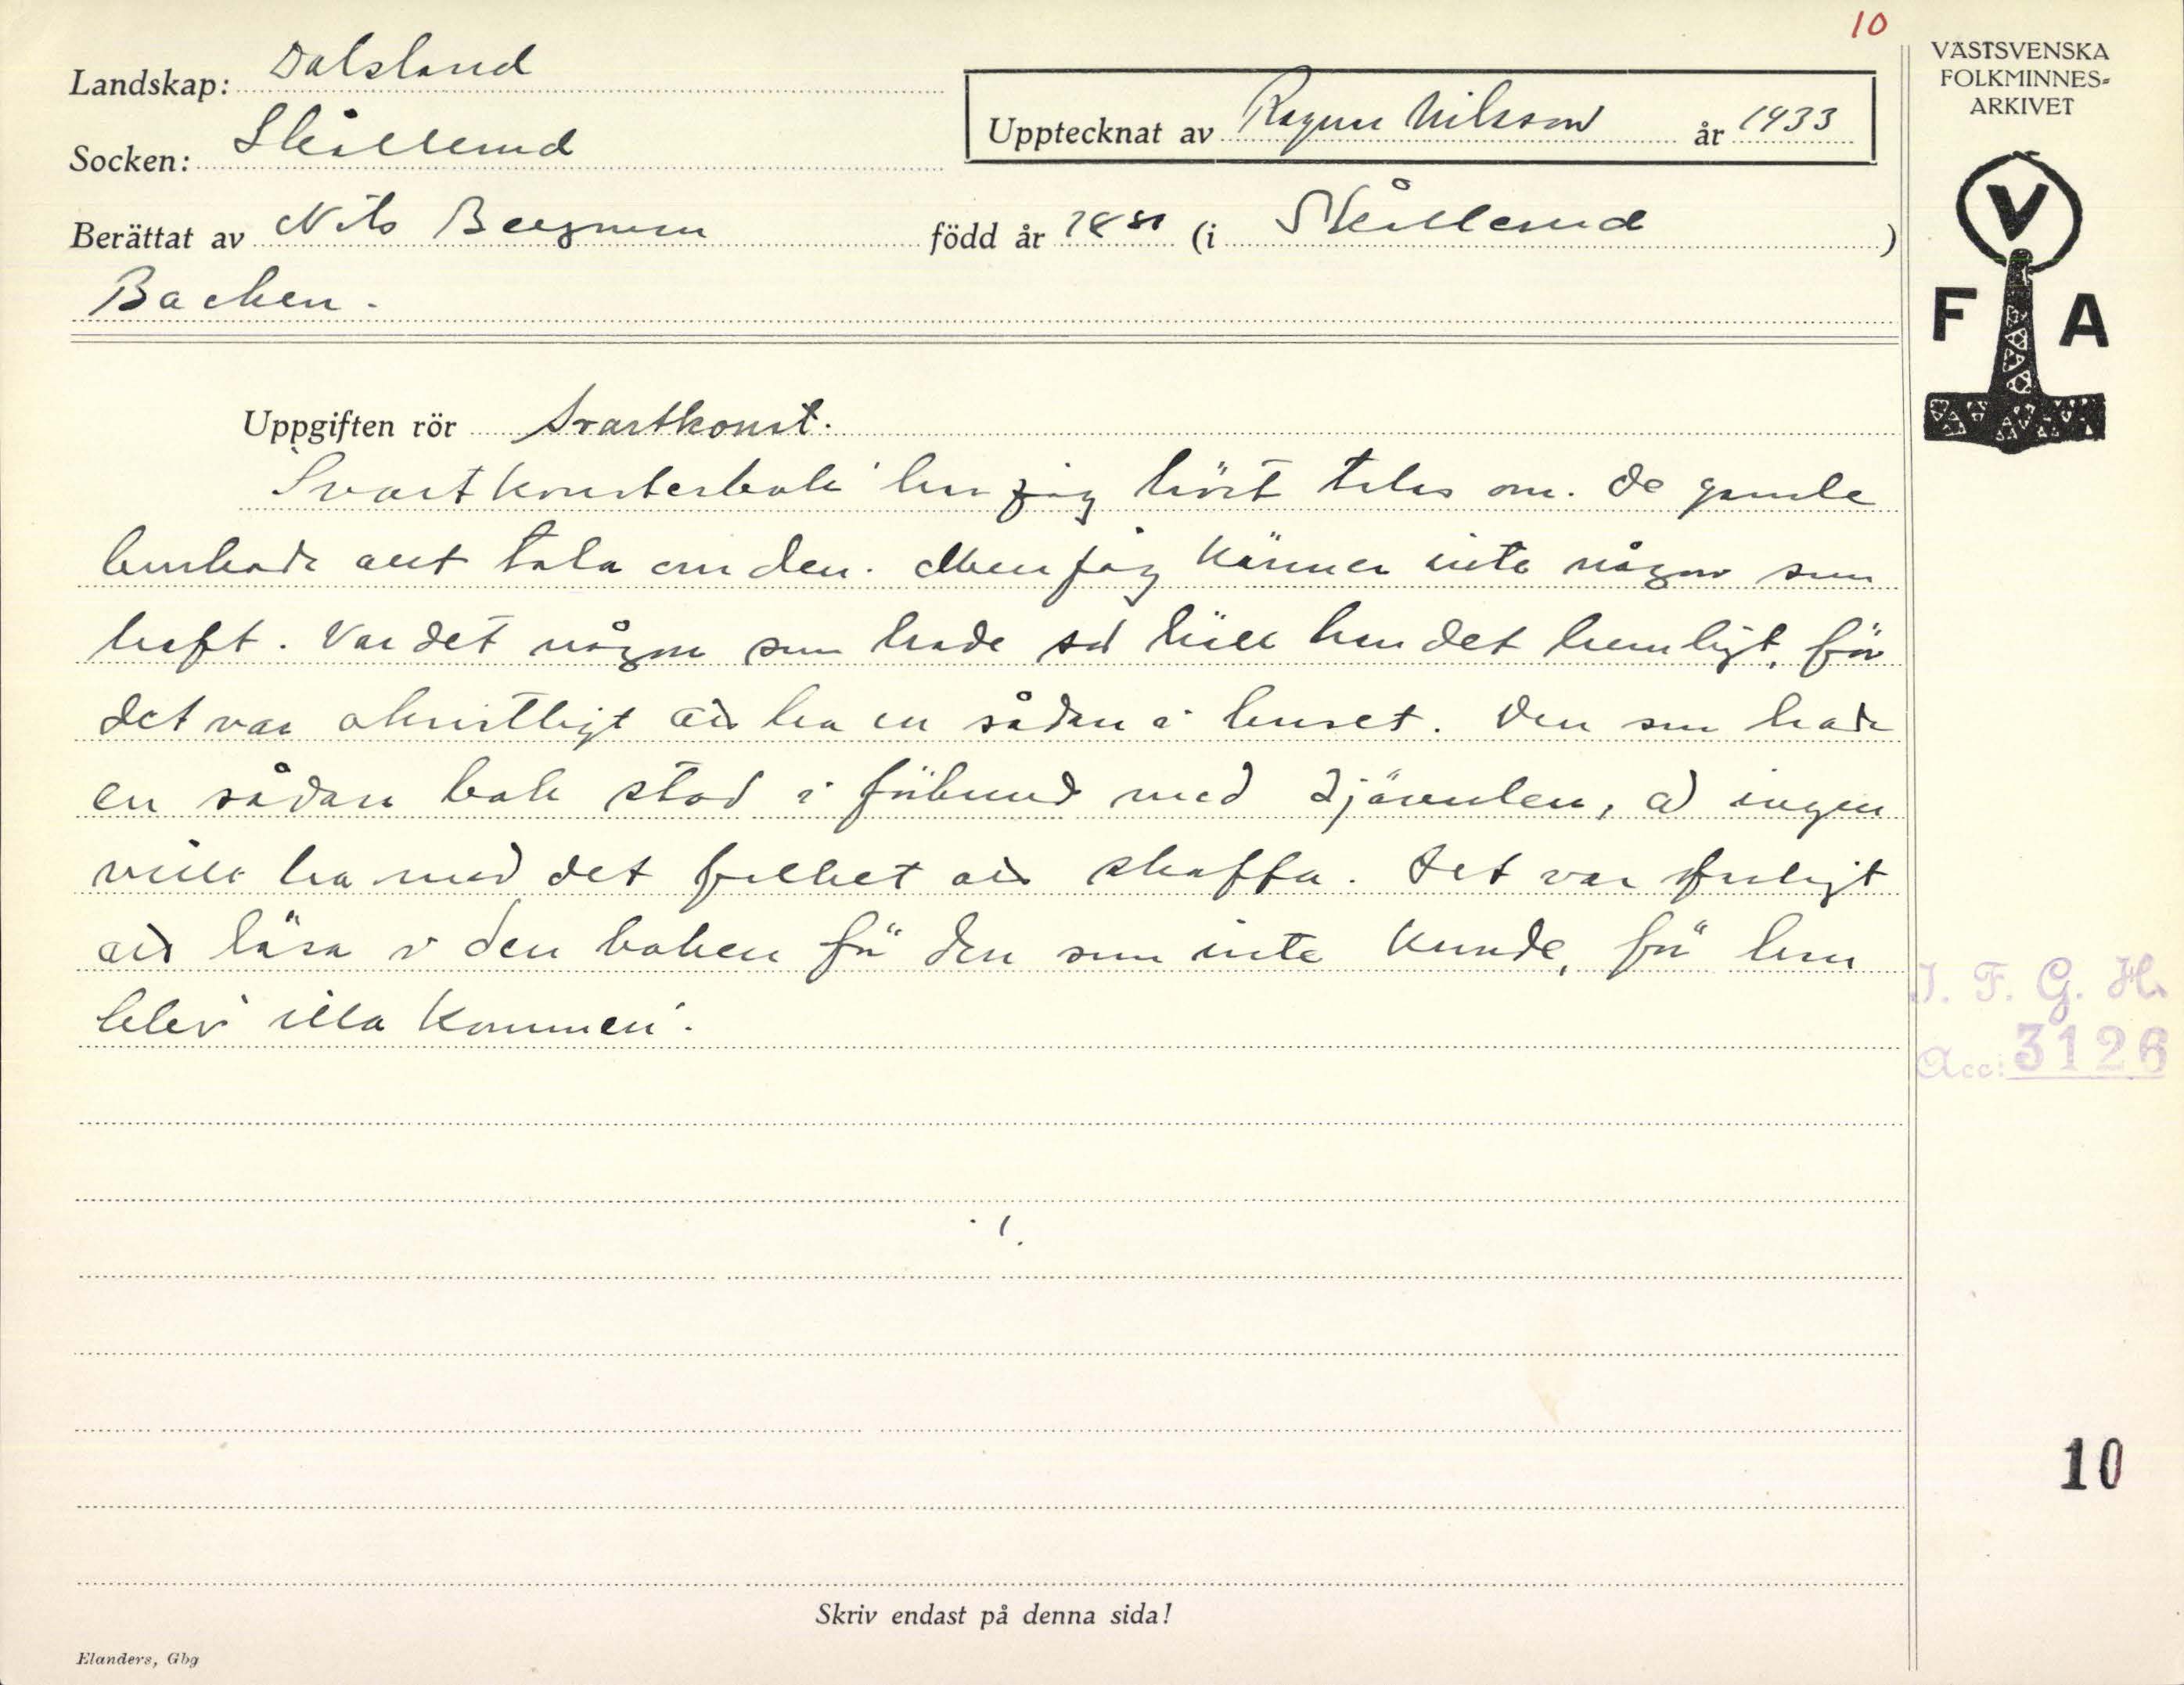 10
Landskap: Dalsland
Socken: Skållerud
Upptecknat av Ragnar Nilsson år 1933
Berättat av Nils Bergman född år 1881 (i Skållerud)
Backen.
VÄSTSVENSKA
FOLKMINNES-
ARKIVET
V
F A
Uppgiften rör Svartkonst.
"Svartkonsterbok" har jag hört talas om. De gamle
brukade allt tala om den. Men jag känner inte någon som
haft. Var det någon som hade så höll han det hemligt, för
det var okristligt att ha en sådan i huset. Den som hade
en sådan bok stod i förbund med djävulen, å ingen
ville ha med det folket att skaffa. Det var farligt
att läsa i den boken för den som inte kunde, för han
blev "illa kommen".
I. F. G. H.
Acc: 3126
10
Skriv endast på denna sida!
Elanders, Gbg